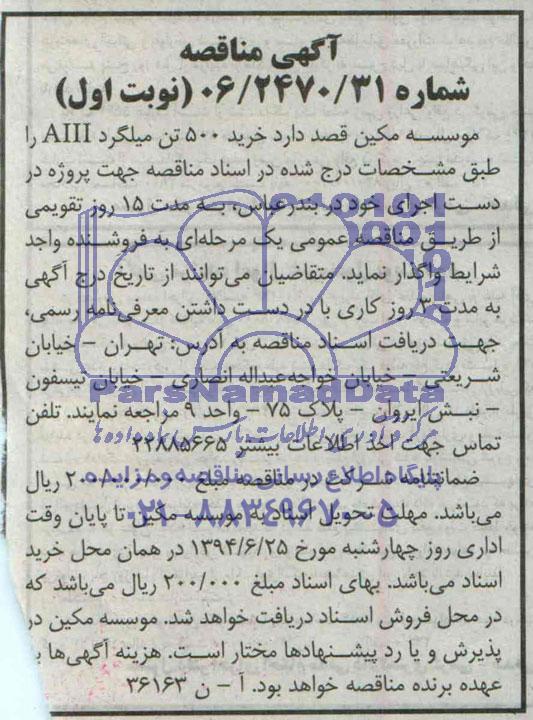 آگهی مناقصه
شماره ۰۶/۲۴۷۰/۳۱ (نوبت اول)
موسسه مکین قصد دارد خرید ۵۰۰ تن میلگرد AIII را
طبق مشخصات درج شده در اسناد مناقصه جهت پروژه در
دست اجرای خود در بندرعباس، به مدت ۱۵ روز تقویمی
از طریق مناقصه عمومی یک مرحله‌ای به فروشنده واجد
شرایط واگذار نماید. متقاضیان می‌توانند از تاریخ درج آگهی
به مدت ۳ روز کاری با در دست داشتن معرفی‌نامه رسمی،
جهت دریافت اسناد مناقصه به آدرس: تهران – خیابان
شریعتی – خیابان خواجه عبداله انصاری – خیابان تیسفون
– نبش ایروان – پلاک ۷۵ – واحد ۹ مراجعه نمایند. تلفن
تماس جهت اخذ اطلاعات بیشتر ۲۲۸۸۵۶۶۵
ضمانتنامه شرکت در مناقصه مبلغ ریال
می‌باشد. مهلت تحویل اسناد به موسسه مکین تا پایان وقت
اداری روز چهارشنبه مورخ ۱۳۹۴/۶/۲۵ در همان محل خرید
اسناد می‌باشد. بهای اسناد مبلغ ۲۰۰/۰۰۰ ریال می‌باشد که
در محل فروش اسناد دریافت خواهد شد. موسسه مکین در
پذیرش و یا رد پیشنهادها مختار است. هزینه آگهی‌ها
عهده برنده مناقصه خواهد بود. آ – ن ۳۶۱۶۳
ParsNamadData
پایگاه اطلاع رسانی مناقصه و مزایده
۰۲۱-۸۸۳۴۹۶۷۰-۵